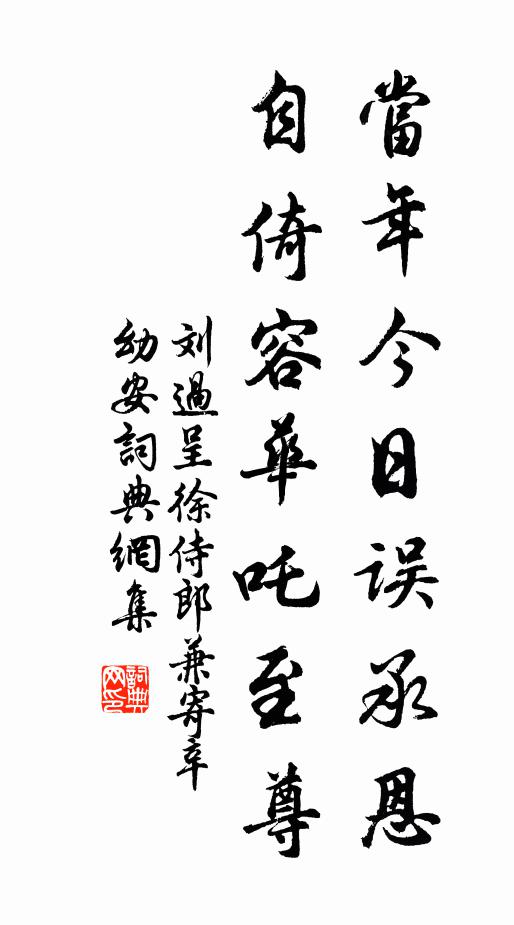 當年今日误承恩
自倚容華吒至尊
刘過呈徐侍郎兼寄辛
幼安詞典網集
詞典
网印